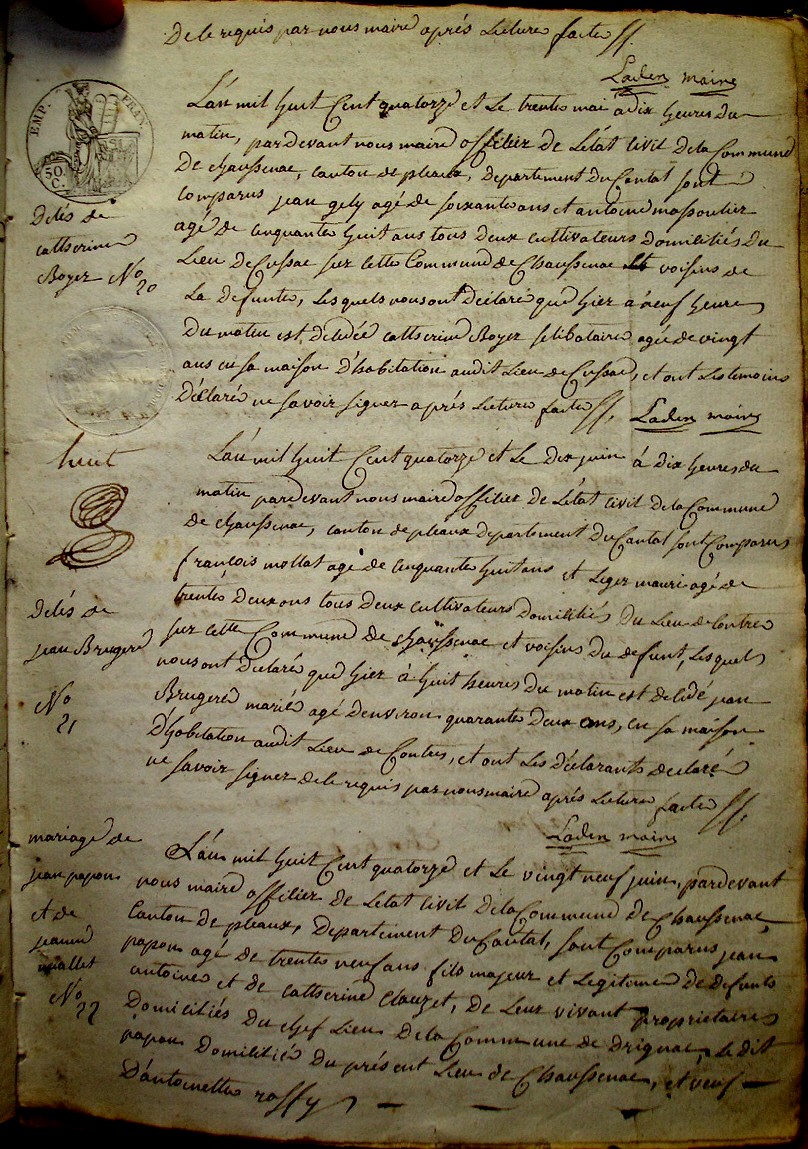 De le requis par nous maire aprés Lecture faitte //.
Laden maire
EMP. FRAN.
50 C.
Délés de
cattherine
Boyer No
20
L'an mil huit Cent quatorze et Le trente mai a dix heures du
matin, pardevant nous maire offitier de L'état Civil de la Commune
de chaussenac, canton de pleaux, departement du Cantal sont
Comparus jean gely agé de soixante ans et antoine massoutier
agé de cinquante huit ans tous deux cultivateurs domiliciés du
Lieu de Cussac sur cette Commune de Chaussenac et voisins de
La defunte, Lesquels nous ont déclaré que hier a neuf heures
du matin est décédée cattherine Boyer selibataire agée de vingt
ans en sa maison d'habitation au dit Lieu de Cussac, et ont Les temoins
Déclaré ne savoir signer aprés Lecture faitte //. Laden maire
huit
Délés de
jean Brugere
No
21
L'an mil huit Cent quatorze et Le dix juin à dix heures du
matin pardevant nous maire offitier de L'état Civil de la Commune
de chaussenac, canton de pleaux departement du Cantal sont Comparus
françois mollat agé de cinquante huit ans et Leger mauri agé de
trente deux ans tous deux cultivateurs domiliciés du Lieu de Contres
sur cette Commune de chaussenac et voisins du defunt, Lesquels
nous ont déclaré que hier à huit heures du matin est décédé jean
Brugere marié agé d'environ quarante deux ans, en sa maison
d'habitation au dit Lieu de Contres, et ont Les déclarants declaré
ne savoir signer de le requis par nous maire aprés Lecture faitte //.
Laden maire
mariage de
jean papon
et de
jeanne
mollet
No
22
L'an mil huit Cent quatorze et Le vingt neuf juin, pardevant
nous maire offitier de L'état Civil de la Commune de Chaussenac,
Canton de pleaux, Departement du Cantal, sont Comparus jean
papon agé de trente neuf ans fils majeur et Legitime de defunts
antoine et de cattherine Clauzet, de Leur vivant propriétaires
Domiciliés du chef Lieu de la Commune de Drignac, le dit
papon Domilicié du présent Lieu de Chaussenac, et veuf
D'antoinette raffy